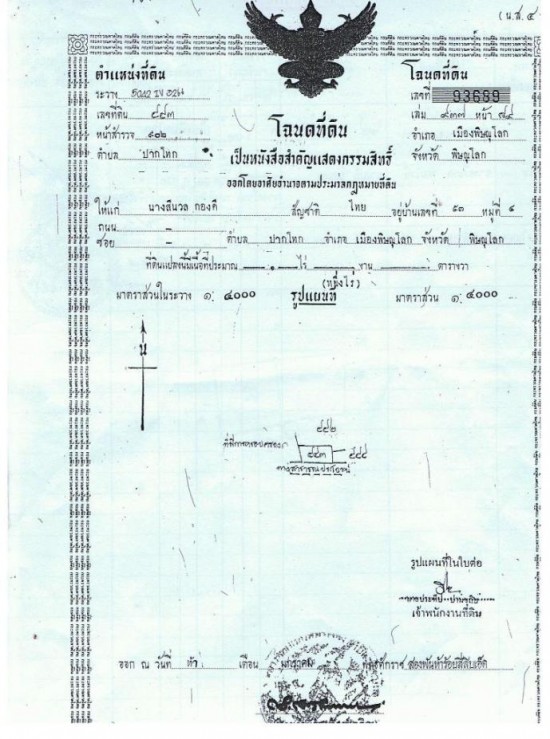 (น.ส. ๔
ตำแหน่งที่ดิน
ระวาง 5042 IV 0214
เลขที่ดิน ๔๔๓
หน้าสำรวจ
ตำบล ปากโทก
โฉนดที่ดิน
เลขที่ 93689
เล่ม ๙๓๗ หน้า
อำเภอ เมืองพิษณุโลก
จังหวัด พิษณุโลก
โฉนดที่ดิน
เป็นหนังสือสำคัญแสดงกรรมสิทธิ์
ออกโดยอาศัยอำนาจตามประมวลกฎหมายที่ดิน
ให้แก่ นางสีนวล กองดี สัญชาติ ไทย อยู่บ้านเลขที่ ๕๓ หมู่ที่
ถนน
ซอย – ตำบล ปากโทก อำเภอ เมืองพิษณุโลก จังหวัด พิษณุโลก
ที่ดินแปลงนี้มีเนื้อที่ประมาณ ๑ ไร่ - งาน - ตารางวา
(หนึ่งไร่)
มาตราส่วนในระวาง ๑: ๔๐๐๐ รูปแผนที่ มาตราส่วน ๑: ๔๐๐๐
น
๔๔๒
ที่มีการครอบครอง
๔๔๓ ๔๔๔
ทางสาธารณประโยชน์
รูปแผนที่ในใบต่อ
เจ้าพนักงานที่ดิน
ออก ณ วันที่ ห้า เดือน มกราคม พุทธศักราช สองพันห้าร้อยสี่สิบเอ็ด